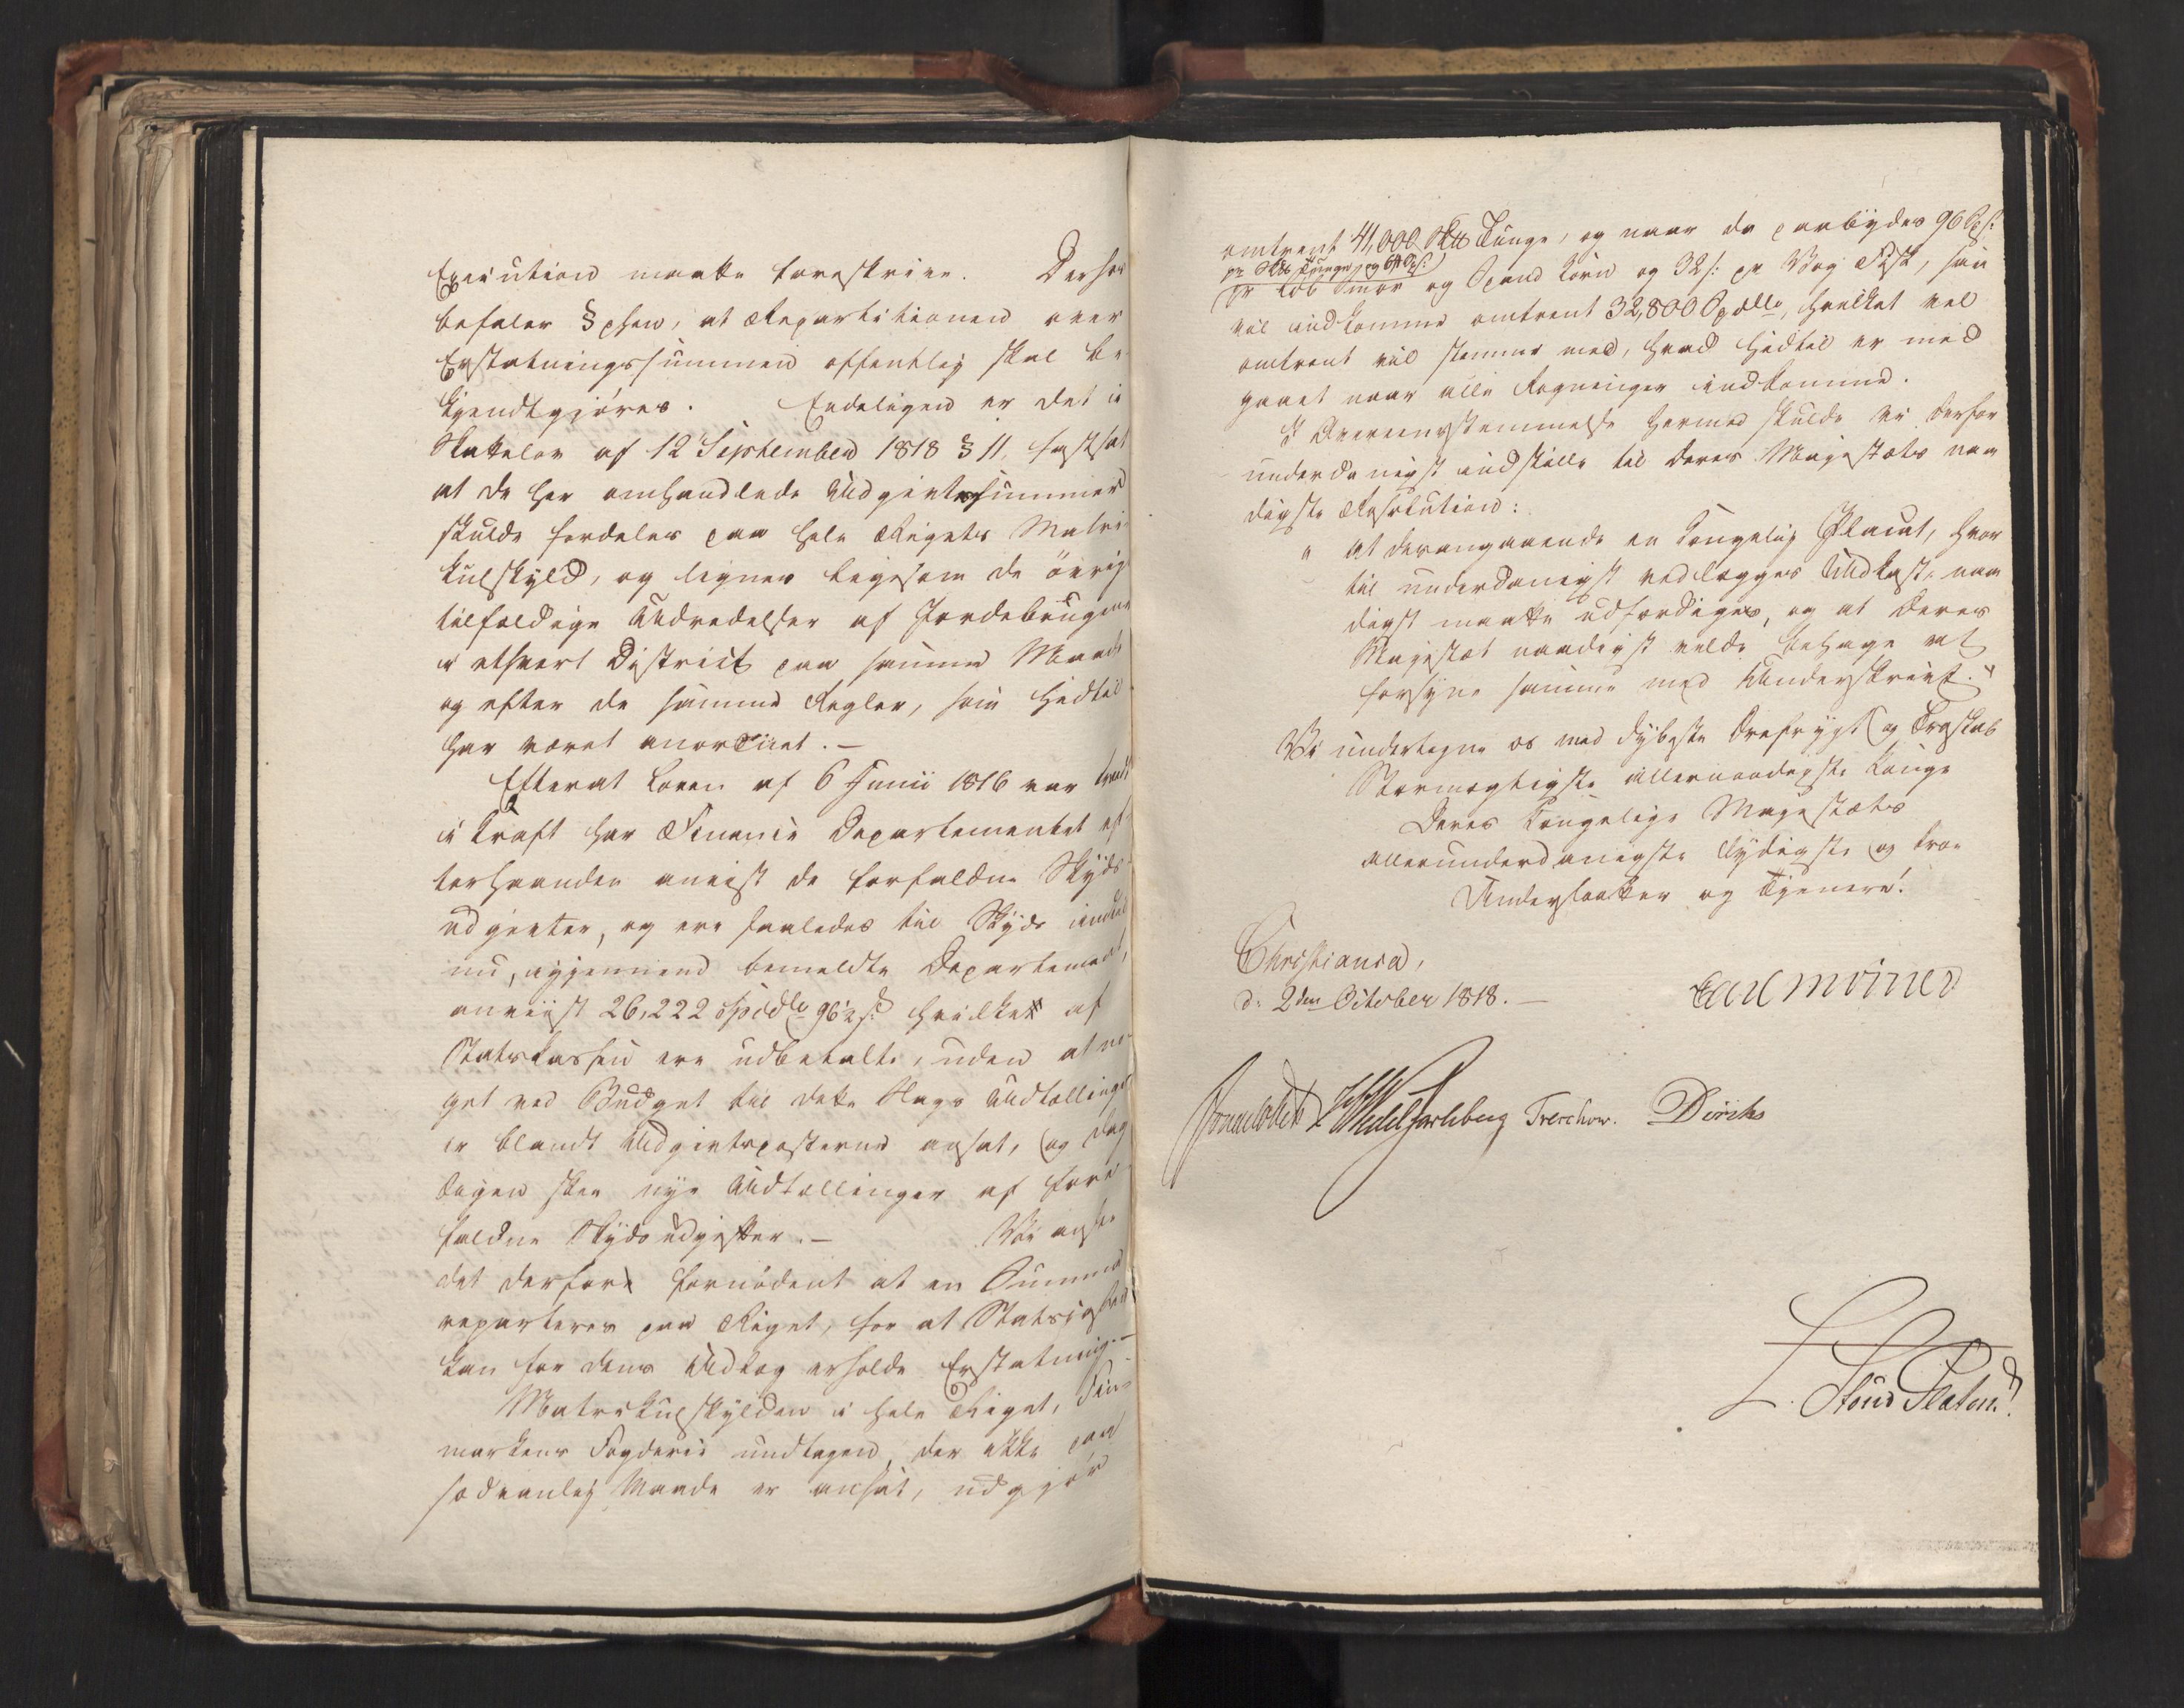 Execution maatte foreskrive. Derhos
befaler §phen, at Repartitionen over
Erstatningssummen offentlig skal be-
kjendtgjöres. Endeligen er det i
Skattelov af 12 September 1818 § 11 fastsat
at de her omhandlede Udgiftssummer
skulde fordeles paa hele Rigets Matri-
kulskyld, og lignes ligesom de övrige
tilfældige Udredelser af Jordebrugene
i ethvert District paa samme Maade
og efter de samme Regler, som hidtil
har været anordnet. —
Efterat Loven af 6 Junii 1816 var traadt
i Kraft har Finance Departementet ef-
terhaanden anviist de forfaldne Skyds
udgifter, og ere saaledes til Skyds indtil
nu, igjennem bemeldte Departement,
anviist 26,222 Spdlr 96½ s: hvilket af
Statskassen ere udbetalte, uden at no-
get ved Budget til dette Slags Udtællinger
er blandt Udgiftsposterne ansat, og dag
dagen skee nye Udtællinger af fore-
faldne Skydsudgifter. — Vi ansee
det derfore fornödent at en Summa
reparteres paa Riget, for at Statskassen
kan for dens Udlæg erholde Erstatning. —
Matrikulskylden i hele Riget, Fin-
markens Fogderie undtagen, der ikke paa
sædvanlig Maade er ansat, udgjör
omtrent 41,000 Skb Tunge, og naar da paabydes 96 s:
pr Skb Tunge, og 64 s:
pr Löb Smör og Spand Korn og 32 s: pr Vog Fisk, saa
vil indkomme omtrent 32,800 Spdlr, hvilket vel
omtrent vil stemme med, hvad hidtil er med
gaaet naar alle Regninger indkomme.
I Overeensstemmelse hermed skulde vi derfor
underdanigst indstille til Deres Majestæts naa
digste Resolution:
" At desangaaende en Kongelig Placat, hvor
til underdanigst vedlægges Udkast, naa
digst maatte udfærdiges, og at Deres
Majestæt naadigst vilde behage at
forsyne samme med Underskrivt."
Vi undertegne os med dybeste Ærefrygt og Troskab
Stormægtigste allernaadigste Konge
Deres Kongelige Majestæts
allerunderdanigste lydigste og troe
Undersaatter og Tjenere!
Christiania,
d: 2den October 1818. —
Carl Mörner
Sommerhielm HWedel Jarlsberg Treschow. Diriks
L. Stoud Platou.